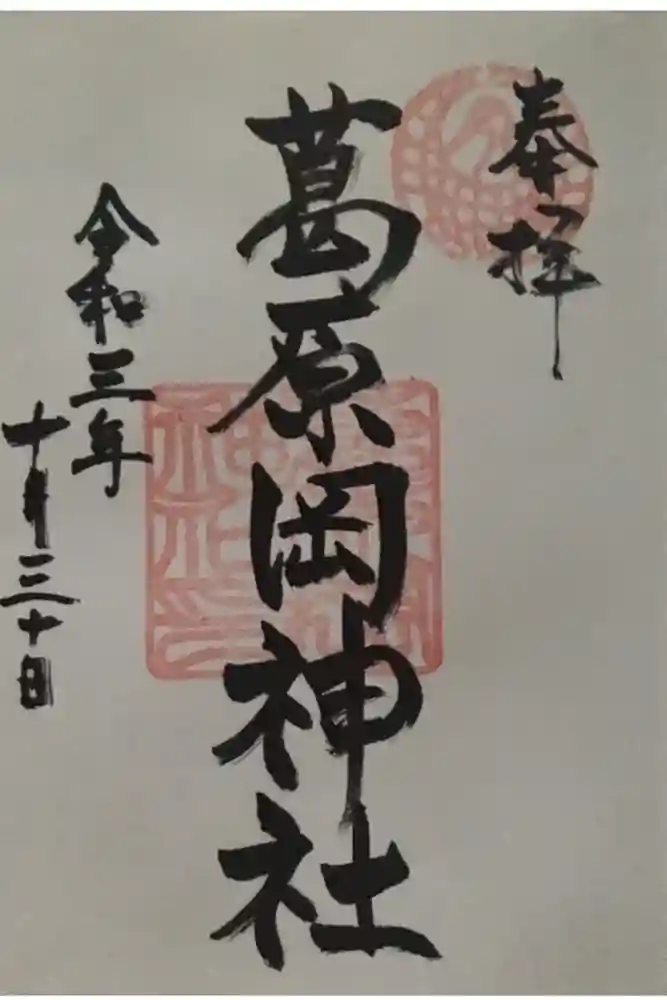 奉拝
葛原岡神社
令和三年
十月三十日